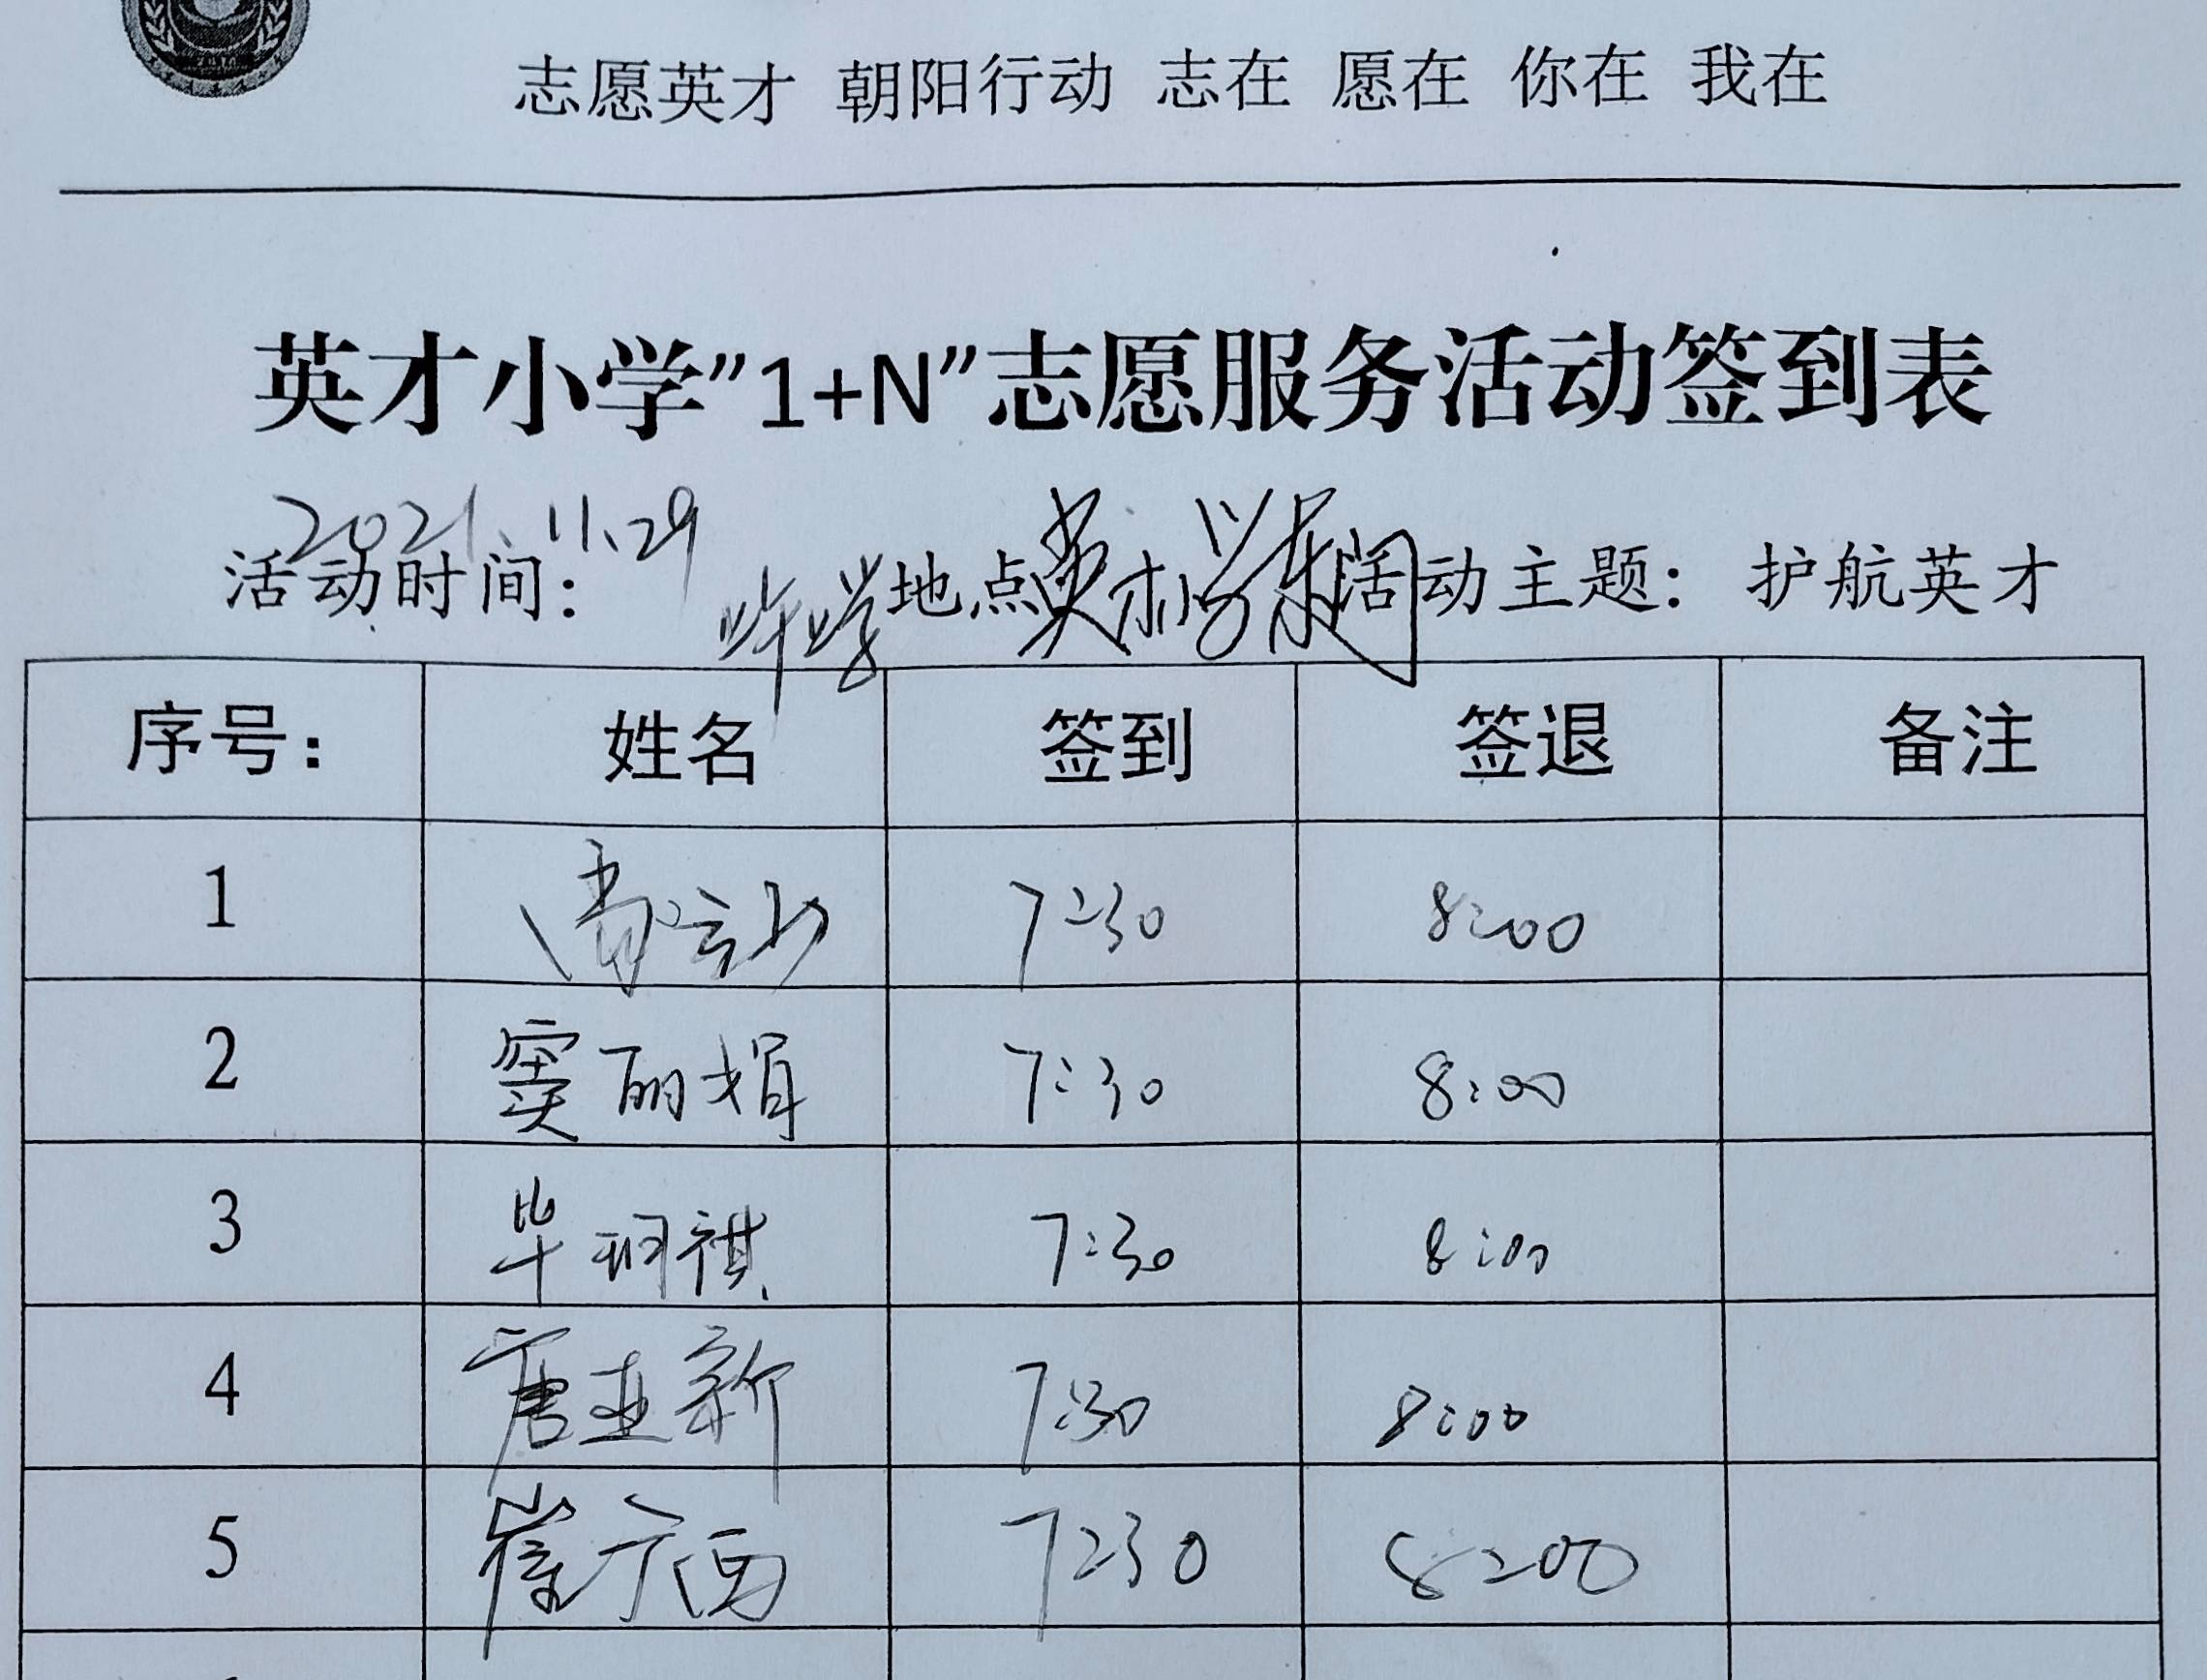 志愿英才 朝阳行动 志在 愿在 你在 我在
英才小学"1+N"志愿服务活动签到表
活动时间: 2021.11.29 地点 英才小学东门 活动主题: 护航英才
序号: 姓名 签到 签退 备注
1 7:30 8:00
2 窦丽娟 7:30 8:00
3 毕珂祺 7:30 8:00
4 唐亚新 7:30 8:00
5 崔广西 7:30 8:00